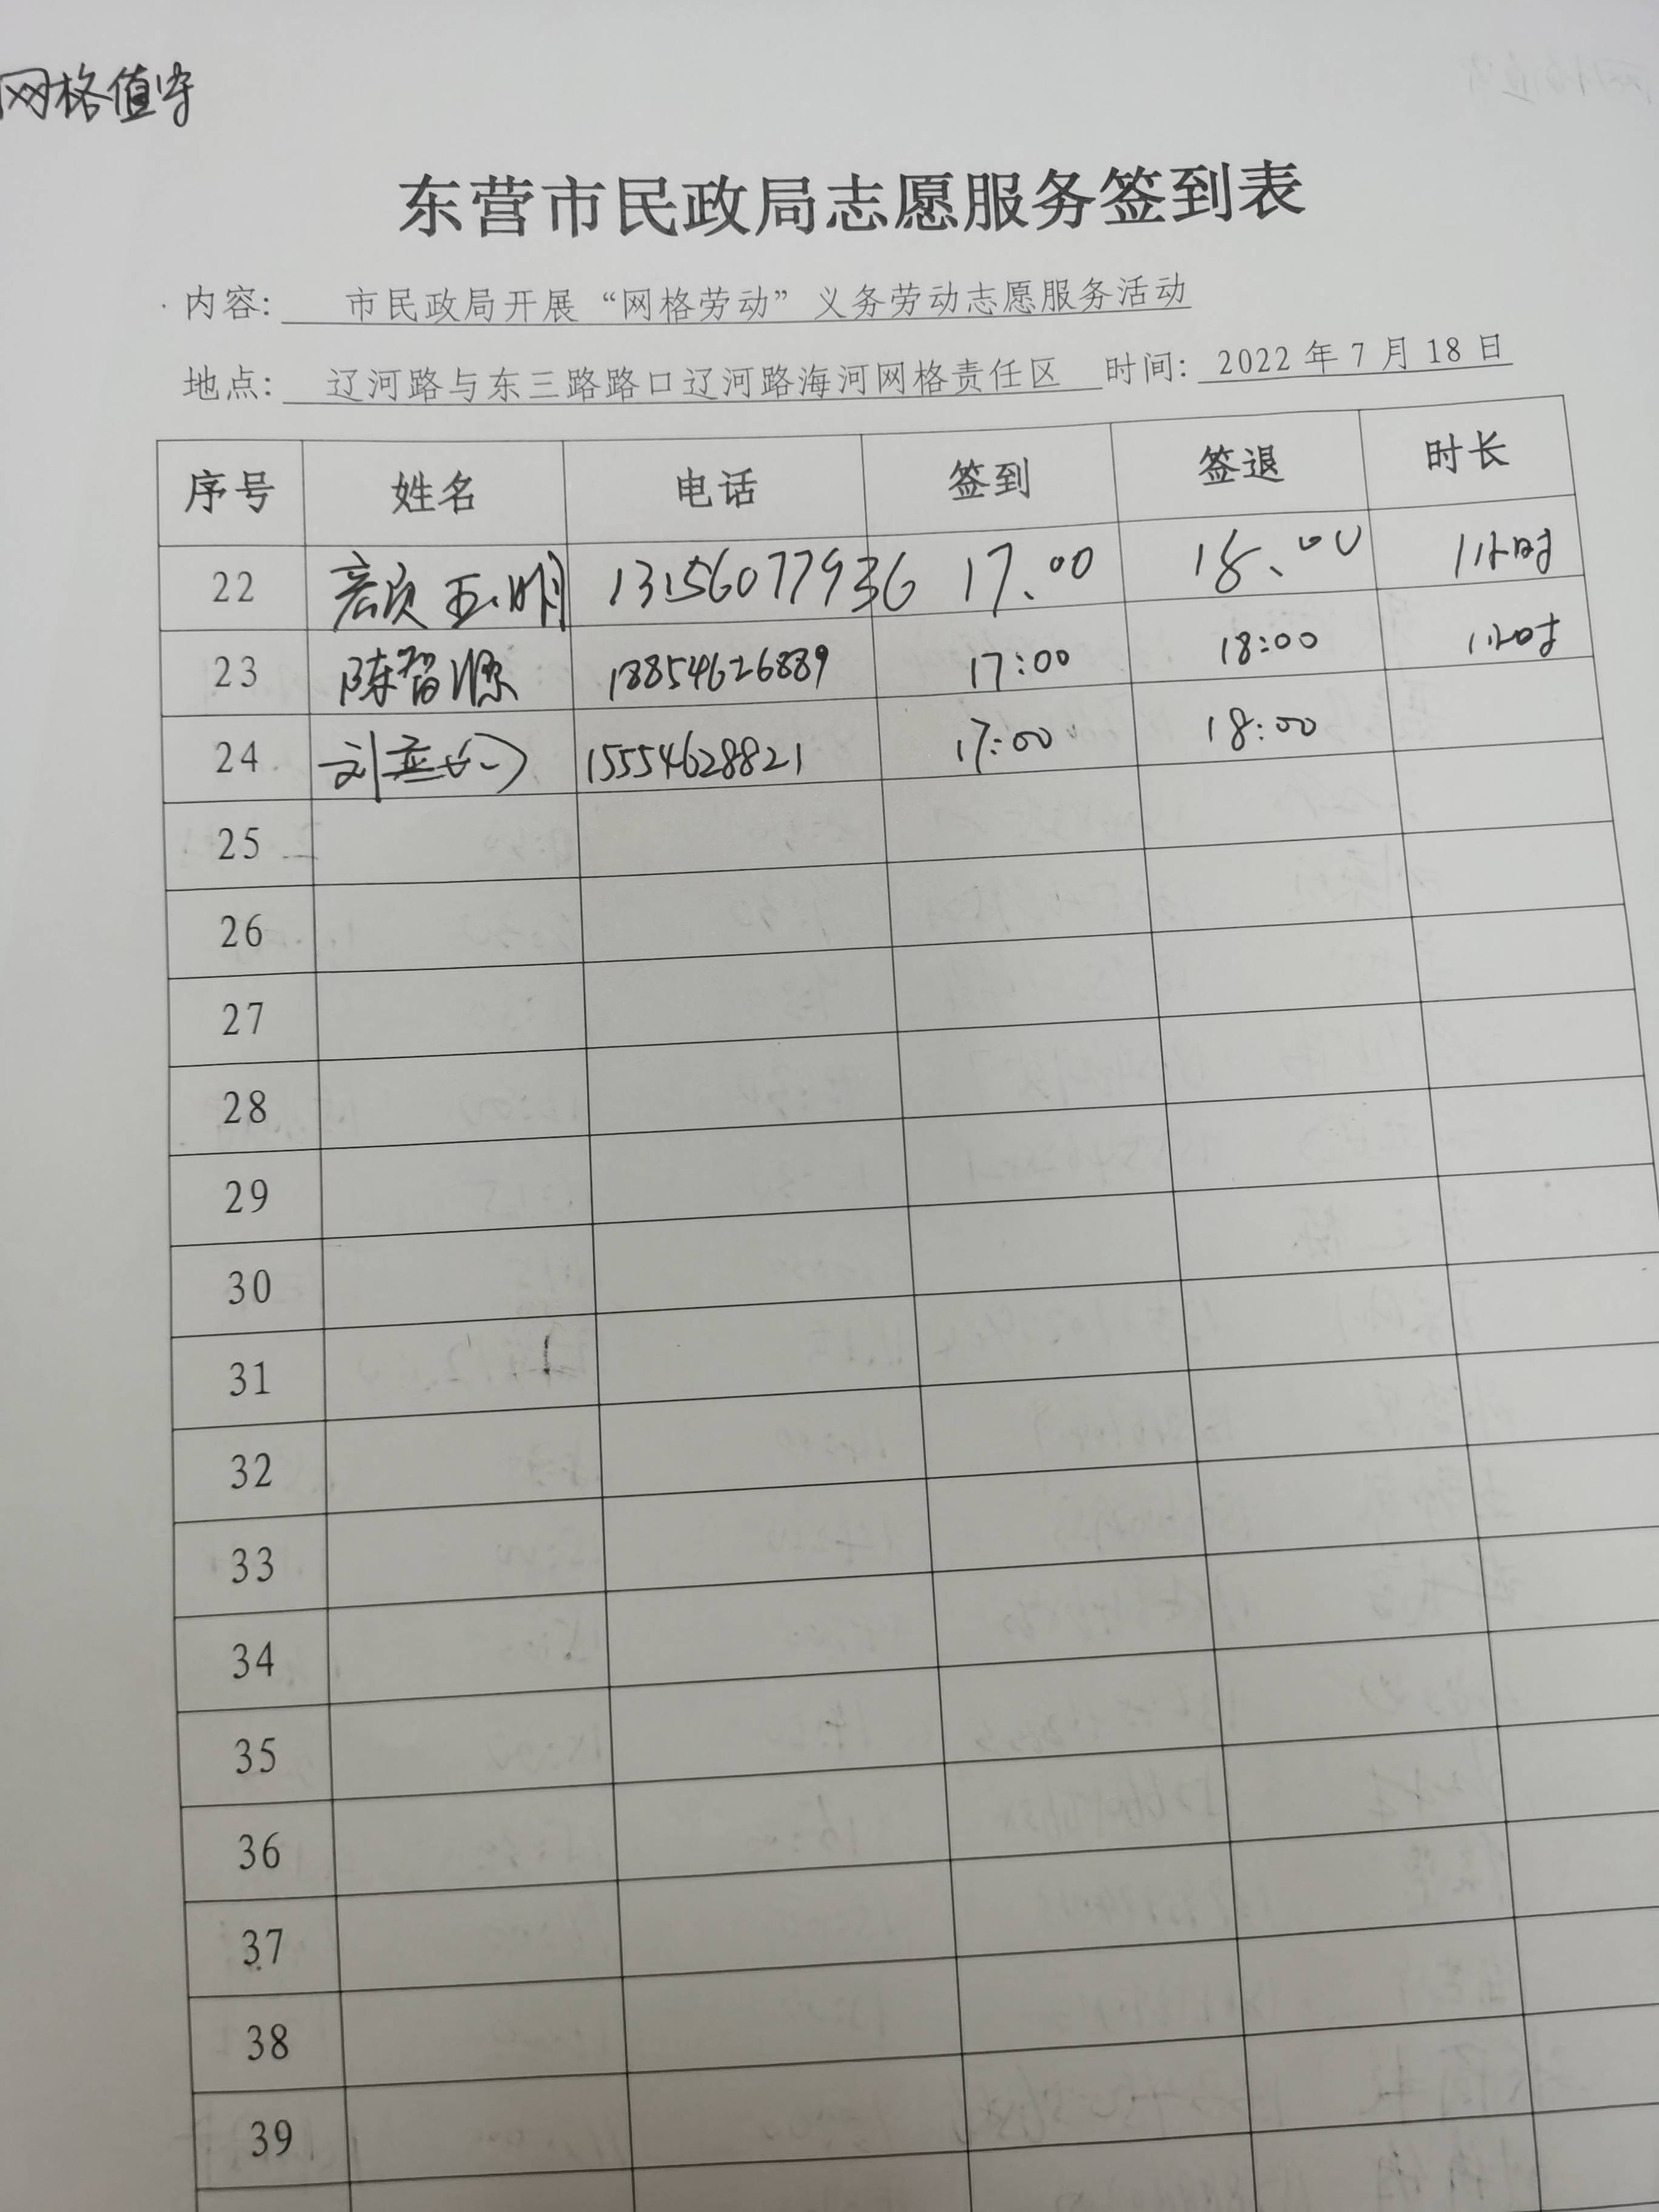 网格值守
东营市民政局志愿服务签到表
内容: 市民政局开展“网格劳动”义务劳动志愿服务活动
地点: 辽河路与东三路路口辽河路海河网格责任区 时间: 2022年7月18日
序号 姓名 电话 签到 签退 时长
22 13156077936 17.00 18.00 1小时
23 陈智源 18854626889 17:00 18:00 1小时
24 刘 15554628821 17:00 18:00
25
26
27
28
29
30
31
32
33
34
35
36
37
38
39